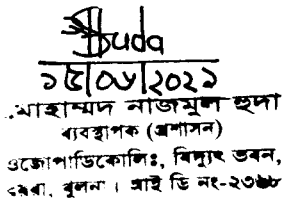 Huda
১৫/০৬/২০২১
মোহাম্মদ নাজমুল হুদা
ব্যবস্থাপক (প্রশাসন)
ওজোপাডিকোলিঃ, বিদ্যুৎ ভবন,
খুলনা । আই ডি নং-